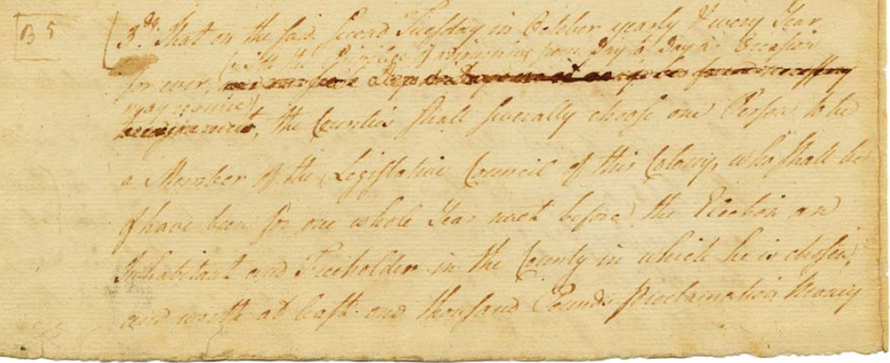 B 5
3dly. That on the said second Tuesday in October yearly & every Year
(with the Privilege of remaining from Day to Day as Occasion
for ever,
may require)
the Counties shall severally choose one Person to be
a Member of the Legislative Council of this Colony, who shall be
& have been for one whole Year next before the Election an
Inhabitant and Freeholder in the County in which he is chosen,
and worth at least one thousand Pounds Proclamation Money